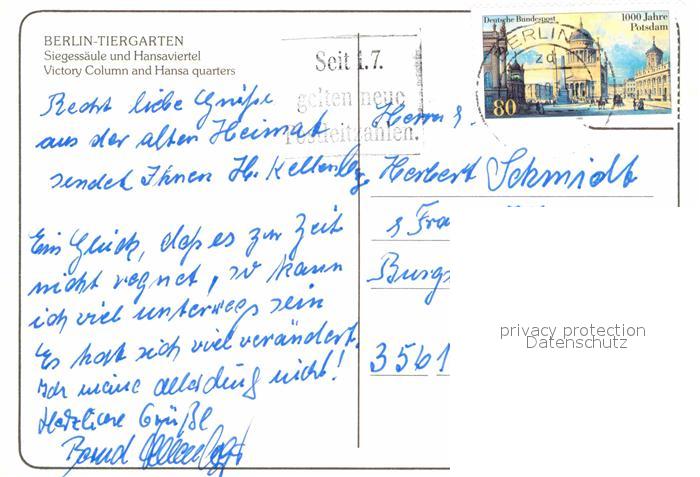 BERLIN-TIERGARTEN
Siegessäule und Hansaviertel
Victory Column and Hansa quarters
Deutsche Bundespost
1000 Jahre
Potsdam
80
BERLIN
Seit 1.7.
gelten neue
Postleitzahlen.
Recht liebe Grüße
aus der alten Heimat
sendet Ihnen H.
Ein Glück, daß es zur Zeit
nicht regnet, so kann
ich viel unterwegs sein
Es hat sich viel verändert.
Ich meine allerding nicht!
Herzliche Grüße
Bernd
Herrn &
Herbert Schmidt
& Fra
Burgs
3561
privacy protection
Datenschutz